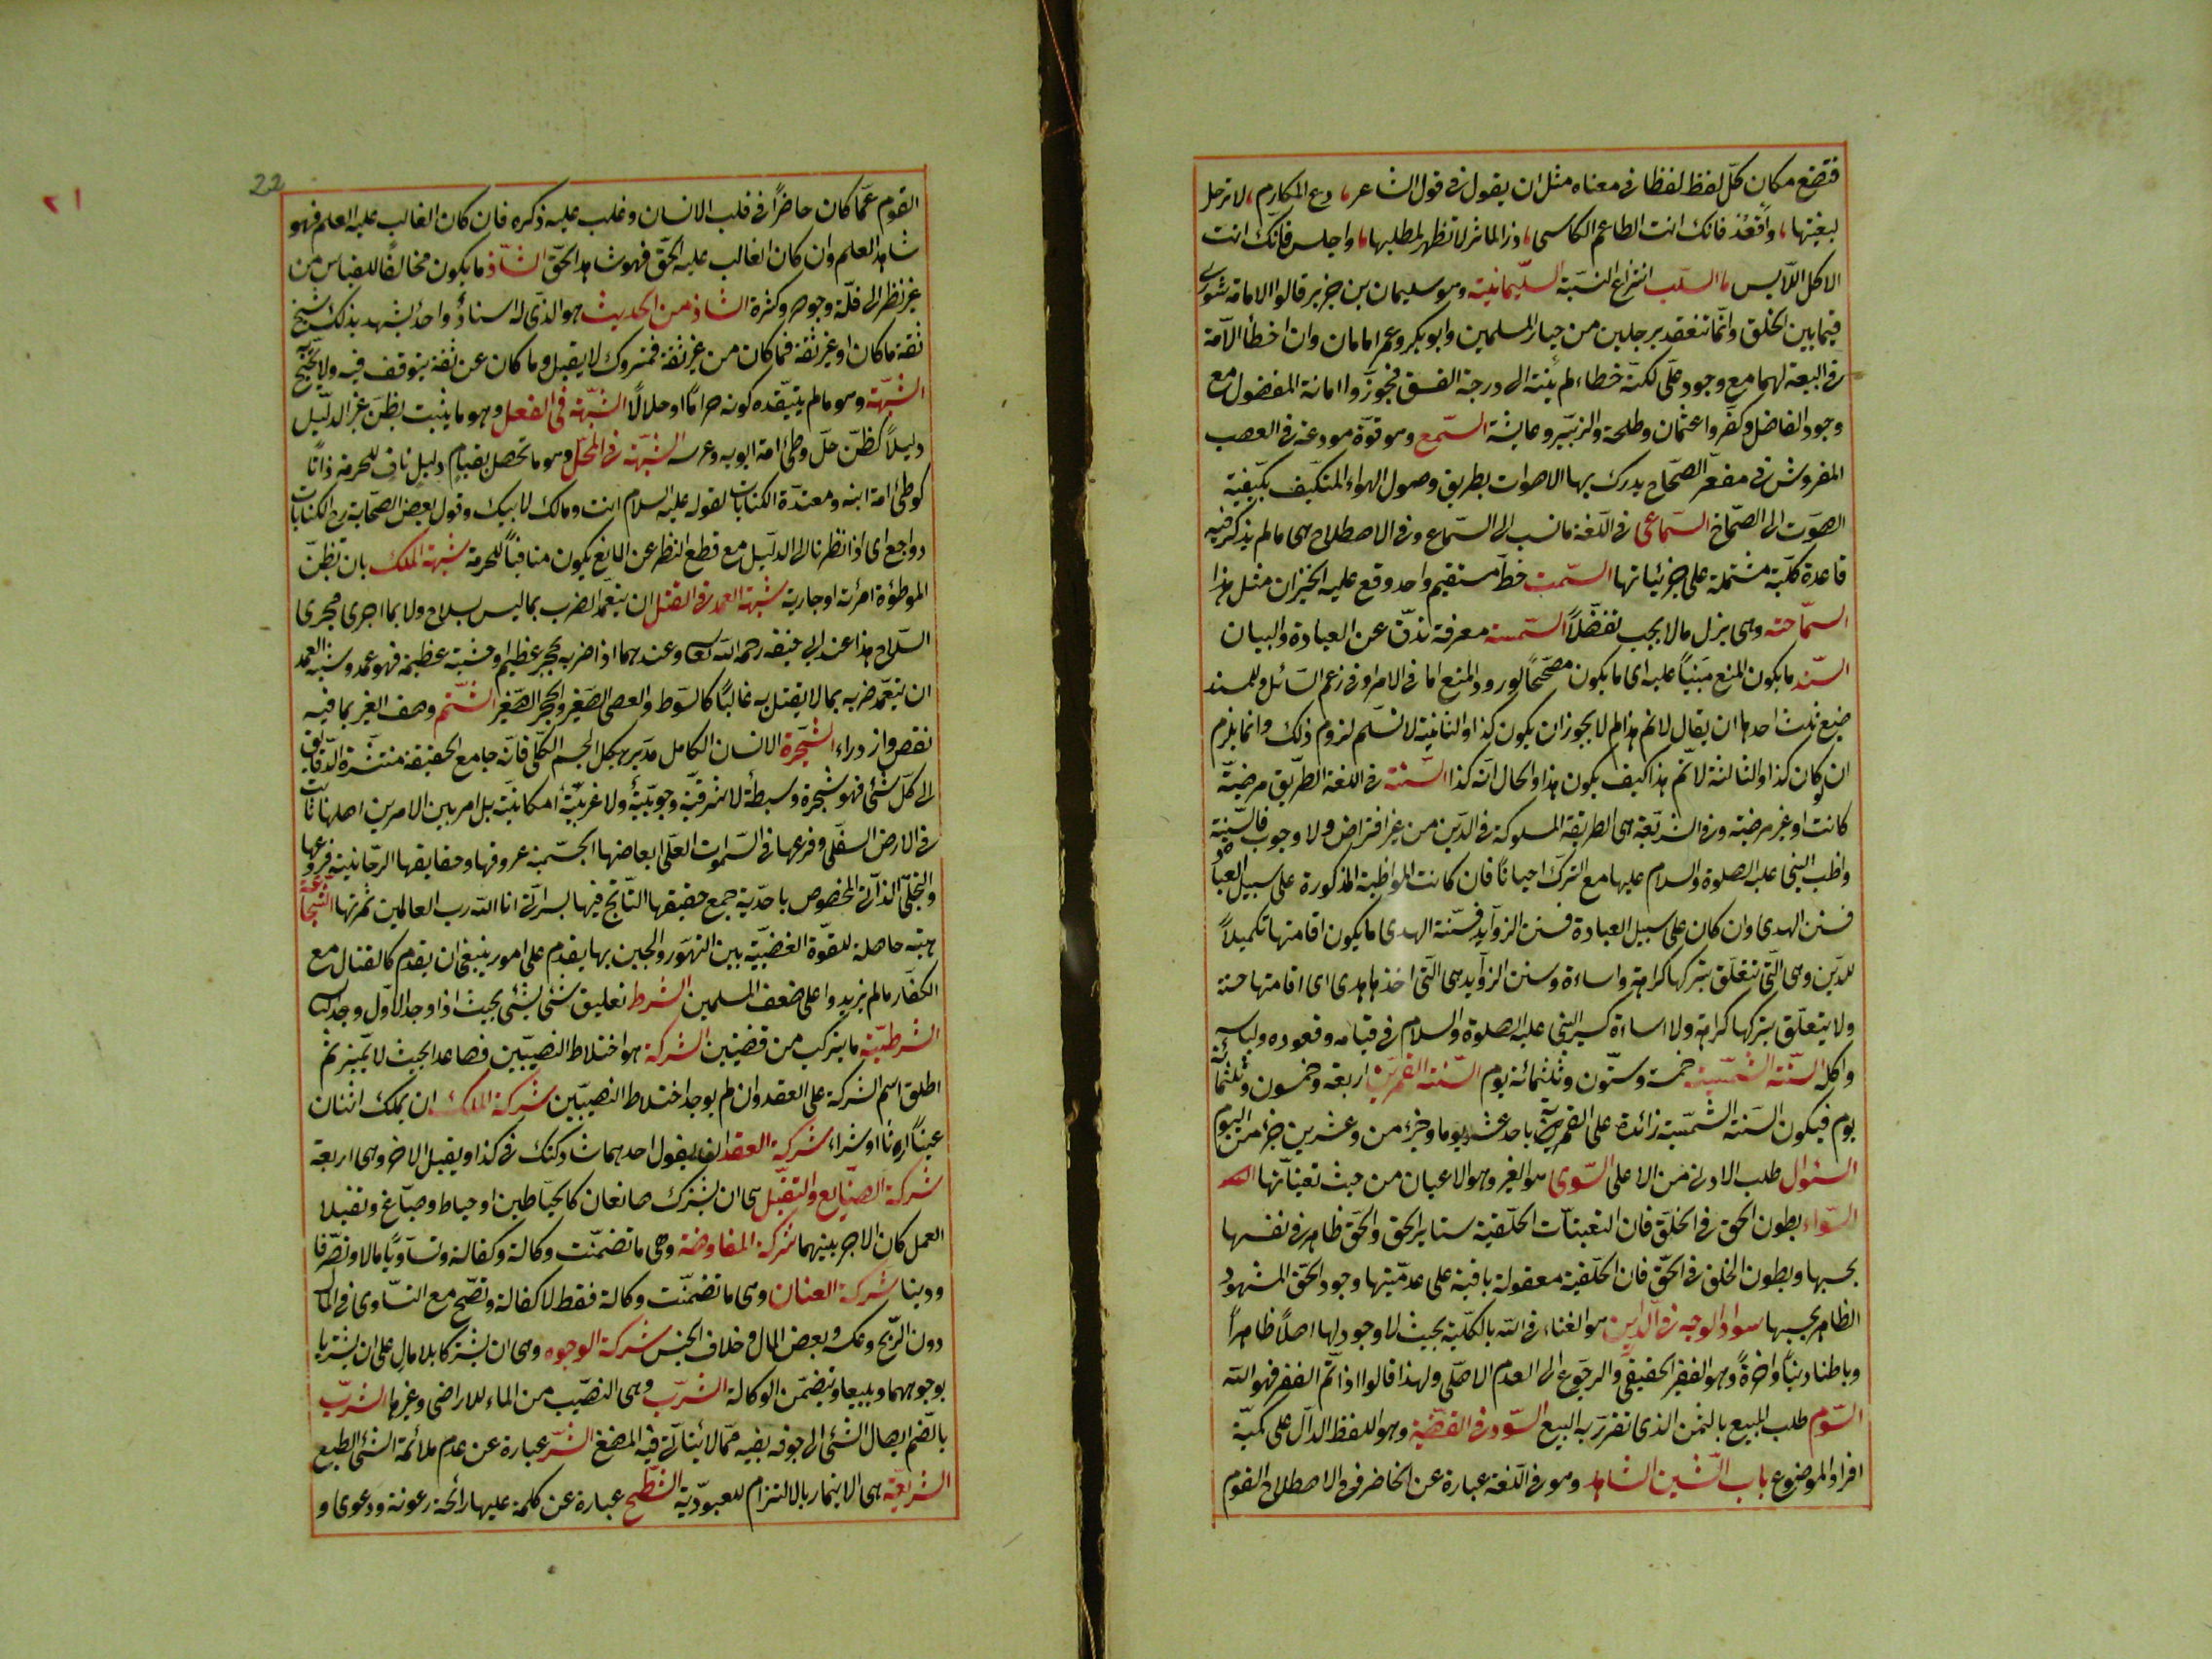 فتضع مكان كلّ لفظ لفظا فى معناه مثل ان يقول فى قول الشاعر، دع المكارم، لا ترحل
لبغيتها، واقعُد فانّك انت الطاعم الكاسى، ذر المآثر لا تظهر لمطلبها، واجلس فانّك انت
الاكل اللّابس، السّلب انتزاع النسّبة السليمانية وهو سليمان بن جرير قالوا الامامة شورى
فيما بين الخلق وانّما تنعقد برجلين من خيار المسلمين وابو بكر وعمر امامان وان اخطأ الامّة
فى البيعة لهما مع وجود على لكنّه خطاء لم ينته الى درجة الفسق فجوزّوا امامة المفضول مع
وجود الفاضل وكفّروا عثمان وطلحة والزّبير وعايشة السّمع وهو قوّة مودعة فى العصب
المفروش فى مقعّر الصّماخ يدرك بها الاصوات بطريق وصول الهواء المتكيّف بكيفية
الصّوت الى الصّماخ السّماعى فى اللّغة ما نسب الى السّماع وفى الاصطلاح هى ما لم يذكر فيه
قاعدة كلّية مشتملة على جزئياتها السّمت خطّ مستقيم واحد وقع عليه الحيّزان مثل هذا
السمّاحة وهى بذل ما لا يجب تفضّلاً السّمسمة معرفة تدقّ عن العبادة والبيان
السّند ما يكون المنع مَبنيّاً عليه اى ما يكون مصَحّحاً لورود المنع اما فى الامر او فى زعم السّائل وللسند
صيغ ثلث احدها ان يقال لا نم هذا لم لا يجوز ان يكون كذا والثانية لا نسّلم لزوم ذلك وانما يلزم
ان لو كان كذا والثالثة لا نم هذا كيف يكون هذا والحال انّه كذا السّنة فى اللغة الطّريق مرضيّة
كانت او غير مرضية وفى الشّريعة هى الطريقة المسلوكة فى الدّين من غير افتراض ولا وجوب فالسّنة
واظب النبى عليه الصلوة والسلام عليها مع الترك احيانا فان كانت المواظبة المذكورة على سبيل العبادة
فسنن الهدى وان كان على سبيل العبادة فسنن الزوآيد فسّنة الهدى ما يكون اقامتها تكميلاً
للدّين وهى التّى تتعلّق بتركها كراهة واساءة وسنن الزوآيد هى التّى اخذها هدى اى اقامتها حسنة
ولا يتعلّق بتركها كراهة ولا اساءة كسير النبى عليه الصلوة والسلام فى قيامه وقعوده ولباسه
واكله السّنة الشّمسية خمسة وستّون وثلثمائة يوم السّنة القمريّة اربعة وخمسون وثلثمائة
يوم فيكون السّنة الشّمسيّة زائدة على القمريّة باحد عشر يوما وجزء من وعشرين جزء من اليوم
السئوال طلب الادنى من الاعلى السّوى هو الغير وهو الاعيان من حيث تعيناّتها
السّواء بطون الحق فى الخلق فان التعيناّت الخلّقية ستاير الحق والحق ظاهر فى نفسها
بحسبها وبطون الخلق فى الحقّ فان الخلّقية معقولة باقية على عدميّتها وجود الحقّ المشهود
الظاهر بحسبها سواد الوجه فى الدّارين هو الفناء فى الله بالكليّة بحيث لا وجود لها اصلاً ظاهراً
وباطنا دنيا واخرةً وهو الفقر الحقيقى والرجوع الى العدم الاصّلى ولهذا قالوا اذا تمّ الفقر فهو الله
السّوم طلب المبيع بالثمن الذى تقررّ به البيع السّور فى القضّية وهو اللفظ الدّال على كميّة
افراد الموضوع باب الشّين الشاهد وهو فى اللّغة عبارة عن الحاضر وفى الاصطلاح القوم
22
٢١
القوم عمّا كان حاضراً فى قلب الانسان وغلب عليه ذكره فان كان الغالب عليه العلم فهو
شاهد العلم وان كان الغالب عليه الحقّ فهو شاهد الحقّ الشّاذ ما يكون مخالفًا للقياس من
غير نظر الى قلّة وجوده وكثرة الشاذ من الحديث هو الذّى له اسنادٌ واحدٌ يشهد بذلك شيخ
ثقة ما كان او غير ثقة فما كان من غير ثقة فمتروك لا يقبل وما كان عن ثقة يتوقف فيه ولا يحتج به
الشّبهة وهو ما لم يتيّقن كونه حراماً او حلالًا الشّبهة فى الفعل وهو ما يثبت بظن غير الدّليل
دليلاً كظنّ حلّ وطئ امة ابويه وعرسه الشّبهة فى المحلّ وهو ما تحصل بقيام دليل نافٍ للحرمة ذاتا
كوطئ امة ابنه ومعتدّة الكنايات لقوله عليه السلام انت ومالك لابيك وقول بعض الصّحابة رض الكنايات
رواجع اى اذا نظرنا الى الدلّيل مع قطع النظر عن المانع يكون منافياً للحرمة شبهة الملك بان تظنّ
الموطؤة امرئته او جاريته شبهة العمد فى القتل ان يتعمّد الضرب بما ليس بسلاح ولا بما اجرى مجرى
السّلاح هذا عند ابى حنيفة رحمه الله تعالى وعندهما اذا ضربه بحجر عظيم او خشبة عظيمة فهو عمد وشبه العمد
ان يتعمّد ضربه بما لا يقتل به غالبًا كالسّوط والعصى الصّغير والحجر الصّغير الشّتم وصف الغير بما فيه
نقص وازدراء الشّجرة الانسان الكامل مدّبر هيكل الجسم الكلّى فانّه جامع الحقيقة منتشرة الدّقايق
الى كلّ شئ فهو شجرة وسطية لا شرقيّة وجوبيّة ولا غربيّة امكانيّة بل امر بين الامرين اصلها ثابت
فى الارض السفّلى وفرعها فى السّموات العلّى ابعاضها الجسّمية عروقها وحقايقها الرّحانية فروعها
والتجلّى الذآتى المخصوص باحدّية جمع حقيقتها النّاتج فيها بسر انّى انا الله رب العالمين ثمرتها الشّجاعة
هيئة حاصلة للقوّة الغضبيّة بين التهوّر والجبن بها يقدم على امور ينبغى ان يقدم كالقتال مع
الكفّار ما لم يزيدوا على ضعف المسلمين الشرط تعليق شئ بشئ بحيث اذا وجد الاوّل وجد الثانى
الشرطيّة ما يتركب من قضيّتين الشركة هو اختلاط النصيبّين فصاعدا بحيث لا يتميّز ثم
اطلق اسم الشركة على العقد وان لم يوجد اختلاط النصيبّين شركة الملك ان يملك اثنان
عيناً ارثا او شراء شركة العقد ان يقول احدهما شاركتك فى كذا ويقبل الاخر وهى اربعة
شركة الصنّايع والتقبّل هى ان يشترك صانعان كالخيّاطين او خياط وصبّاغ وتقبلا
العمل كان الاجر بينهما شركة المفاوضة وهى ما تضمنّت وكالة وكفالة وتساويًا مالا وتصّرفا
ودينا شركة العنان وهى ما تضمنّت وكالة فقط لا كفالة وتصّح مع التساّوى فى المال
دون الرّبح وعكسه وبعض المال وخلاف الجنس شركة الوجوه وهى ان يشتركا بلا مال على ان يشتريا
بوجوههما ويبيعا وتضمّن الوكالة الشرّب وهى النصّيب من الماء للاراضى وغيرها الشرّب
بالضّم ايصال الشّئ الى جوفه بفيه ممّا لا يتأتّى فيه المضغ الشّر عبارة عن عدم ملائمة الشئ الطبع
الشريعّة هى الايتمار بالالتزام للعبودّية الشطّح عبارة عن كلمة عليها رائحة رعونة ودعوى و